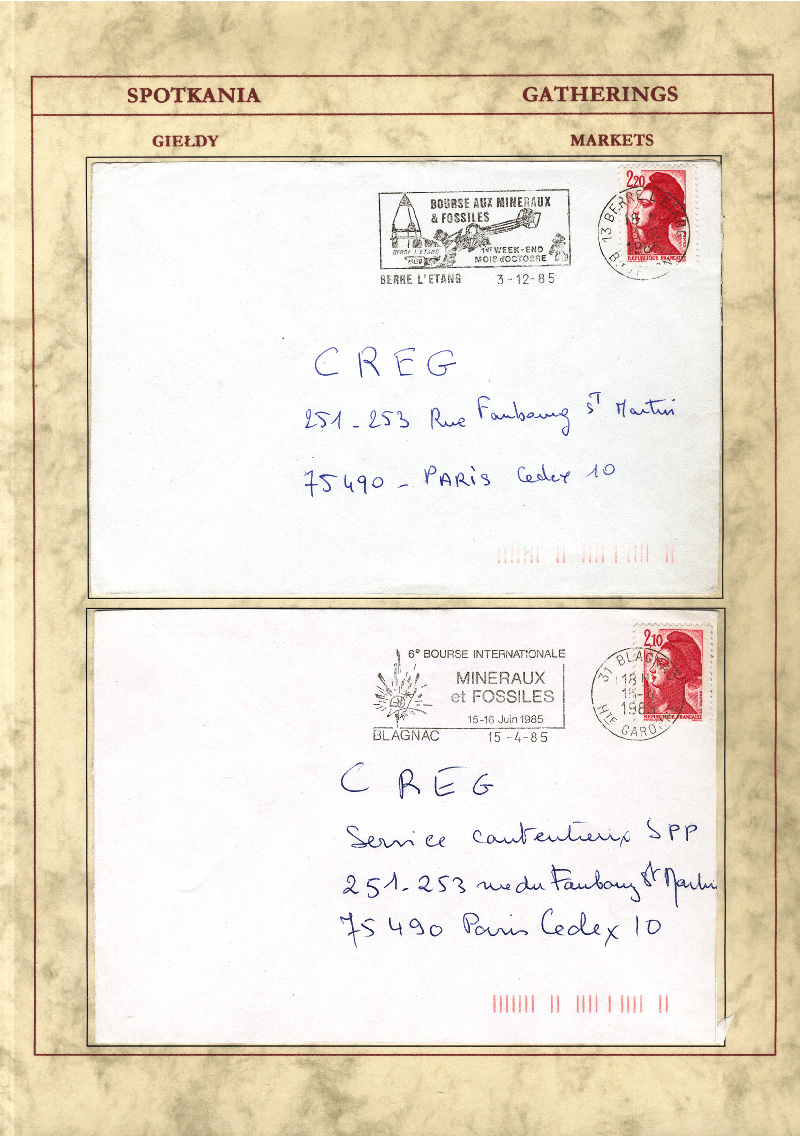 SPOTKANIA GATHERINGS
GIEŁDY MARKETS
BOURSE AUX MINERAUX
& FOSSILES
BERRE L'ETANG
1er WEEK-END
MOIS d'OCTOBRE
BERRE L'ETANG 3-12-85
2,20
13 BERRE L'ETANG
18
REPUBLIQUE FRANÇAISE
CREG
251-253 Rue Faubourg ST Martin
75490 - PARIS Cedex 10
6e BOURSE INTERNATIONALE
MINERAUX
et FOSSILES
15-16 Juin 1985
BLAGNAC 15-4-85
2,10
31 BLAGNAC
18 H
15-
1985
HTE GARONNE
REPUBLIQUE FRANÇAISE
CREG
Service contentieux SPP
251-253 rue du Faubourg St Martin
75490 Paris Cedex 10